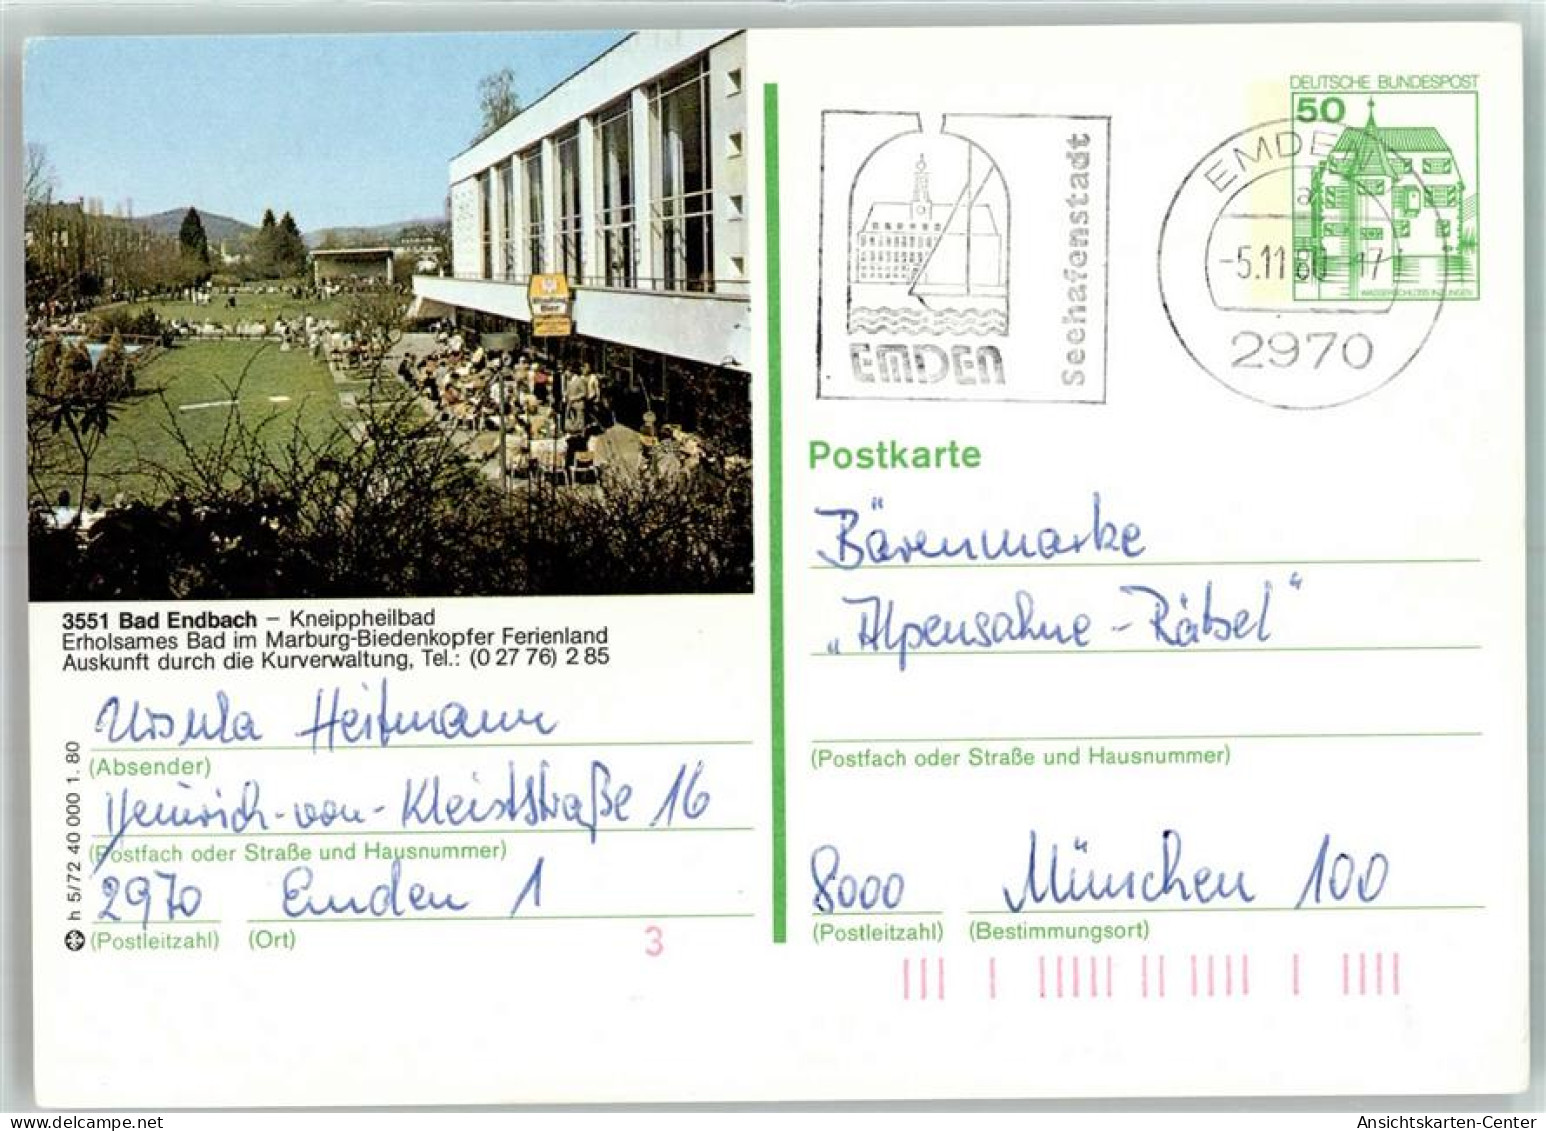 DEUTSCHE BUNDESPOST
50
EMDEN
a
-5.11.80-17
2970
WASSERSCHLOSS INZLINGEN
EMDEN
Seehafenstadt
3551 Bad Endbach – Kneippheilbad
Erholsames Bad im Marburg-Biedenkopfer Ferienland
Auskunft durch die Kurverwaltung, Tel.: (0 27 76) 2 85
Ursula Heitmann
(Absender)
Heinrich-von-Kleiststraße 16
(Postfach oder Straße und Hausnummer)
2970 Emden 1
(Postleitzahl) (Ort)
3
h 5/72 40 000 1. 80
Postkarte
Bärenmarke
„Alpensahne-Rätsel“
(Postfach oder Straße und Hausnummer)
8000 München 100
(Postleitzahl) (Bestimmungsort)
Ansichtskarten-Center